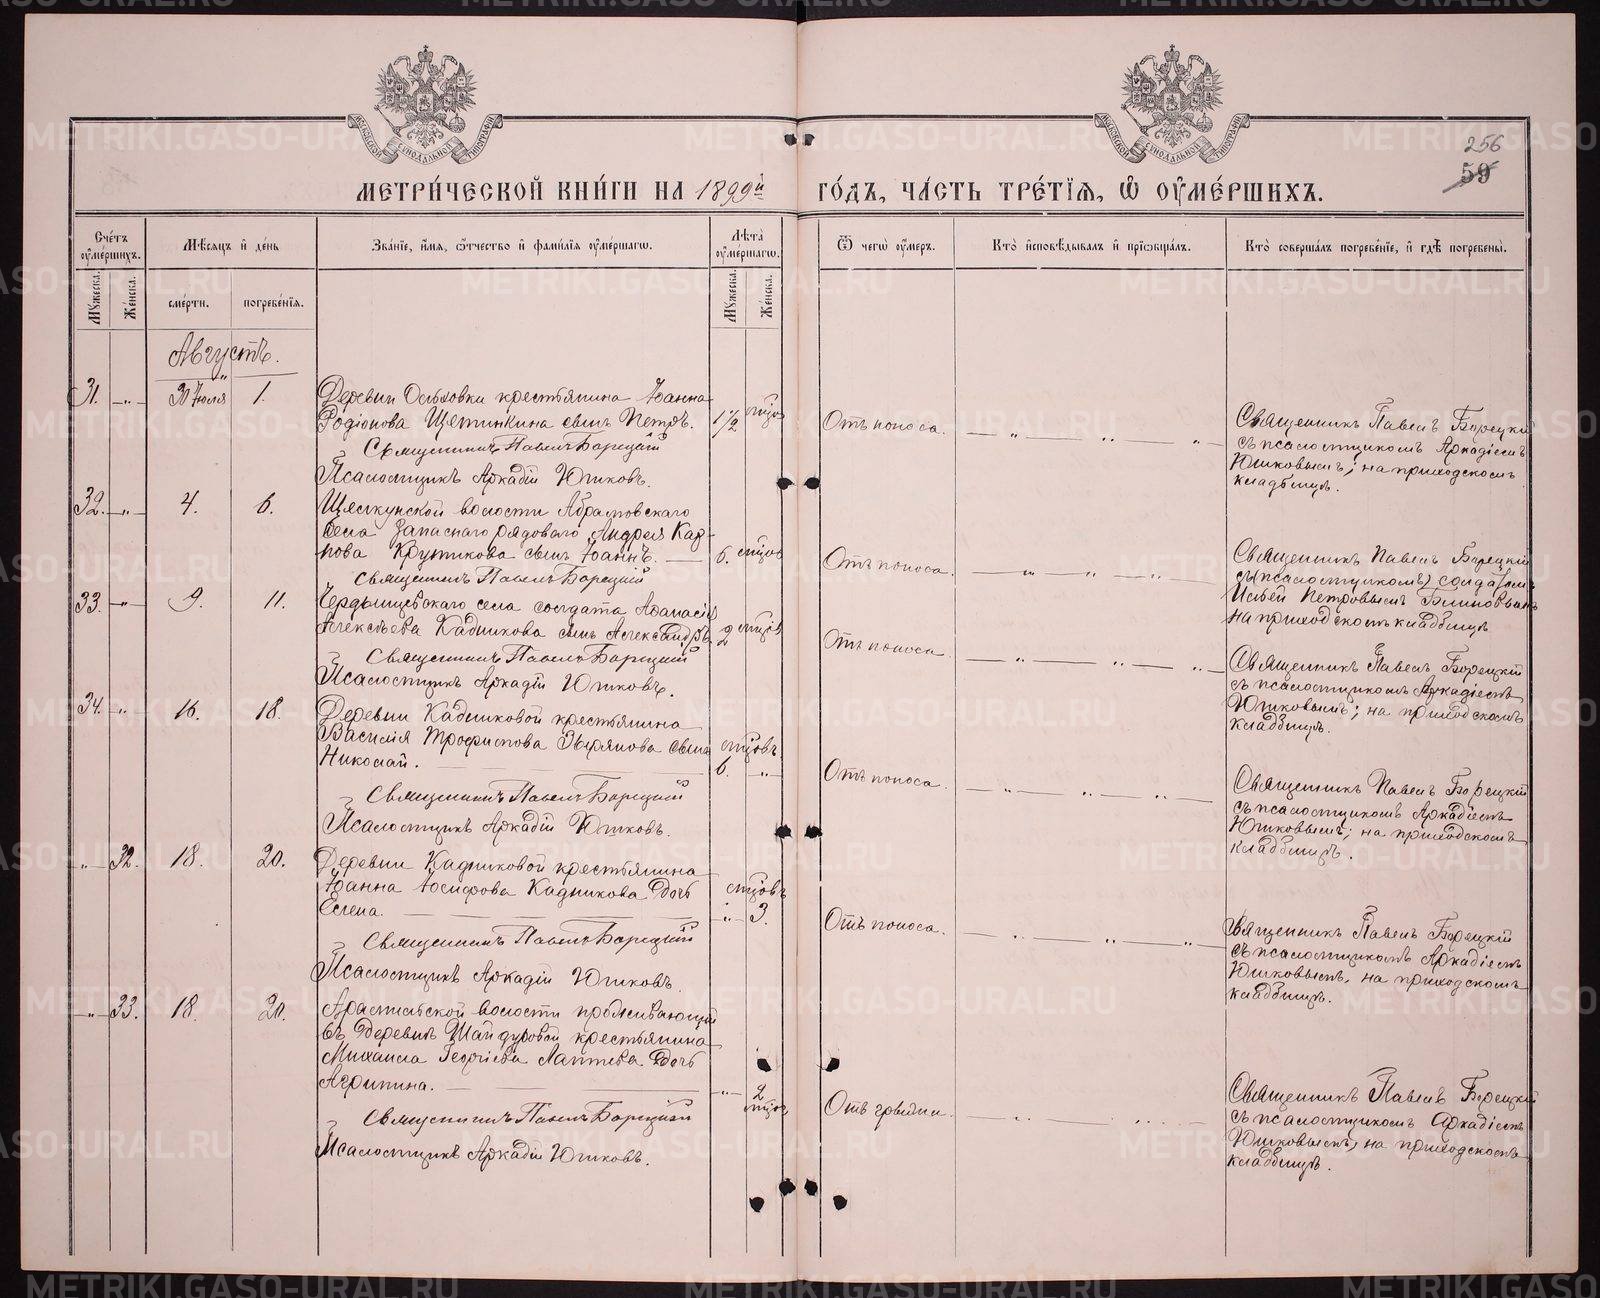 256
59
МЕТРИ́ЧЕСКОЙ КНИ́ГИ НА 1899й ГО́ДЪ, ЧА́СТЬ ТРЕ́ТІѦ, Ѡ҆ ОУ҆МЕ́РШИХЪ.
МОСКОВСКОЙ СѴНОДАЛЬНОЙ ТИПОГРАФІИ
МОСКОВСКОЙ СѴНОДАЛЬНОЙ ТИПОГРАФІИ
Сче́тъ оу҆ме́ршихъ.
Мѣ́сяцъ и҆ де́нь
Зва́нїе, и҆́мѧ, ѻ҆́тчество и҆ фамилїѧ оу҆ме́ршагѡ.
Лѣ́та оу҆ме́ршагѡ.
Ѿ чегѡ̀ оу҆́меръ.
Кто̀ и҆сповѣ́дывалъ и҆ прїѡбща́лъ.
Кто̀ соверша́лъ погребе́нїе, и҆ гдѣ̀ погребены̀.
Мꙋ́жеска.
Же́нска.
сме́рти.
погребе́нїѧ.
Мꙋ́жеска.
Же́нска.
Августъ.
31. „ 30 Іюля 1.
Деревни Ольховки крестьянина Іоанна
Родіонова Щетинкина сынъ Петръ. 1½
Священникъ Павелъ Борецкій
Псаломщикъ Аркадій Юшковъ.
Отъ поноса.
Священникъ Павелъ Борецкій
съ псаломщикомъ Аркадіемъ
Юшковымъ; на приходскомъ
кладбищѣ.
32. „ 4. 6.
Щелкунской волости Абрамовскаго
села запаснаго рядоваго Андрея Кар-
пова Крутикова сынъ Іоаннъ. 6.
Священникъ Павелъ Борецкій
Отъ поноса.
Священникъ Павелъ Борецкій
съ (псаломщикомъ) солдатомъ
Ильей Петровымъ Блиновымъ
на приходскомъ кладбищѣ
33. „ 9. 11.
села солдата Аѳанасія
Алексѣева Кадникова сынъ Александръ 2
Священникъ Павелъ Борецкій
Псаломщикъ Аркадій Юшковъ.
Отъ поноса.
Священникъ Павелъ Борецкій
съ псаломщикомъ Аркадіемъ
Юшковымъ; на приходскомъ
кладбищѣ.
34. „ 16. 18.
Деревни Кадниковой крестьянина
Василія Трофимова Звѣрякова сынъ
Николай. 6. „
Священникъ Павелъ Борецкій
Псаломщикъ Аркадій Юшковъ.
Отъ поноса.
Священникъ Павелъ Борецкій
съ псаломщикомъ Аркадіемъ
Юшковымъ; на приходскомъ
кладбищѣ.
„ 32. 18. 20.
Деревни Кадниковой крестьянина
Іоанна Іосифова Кадникова дочь
Елена. „ 3.
Священникъ Павелъ Борецкій
Псаломщикъ Аркадій Юшковъ.
Отъ поноса.
Священникъ Павелъ Борецкій
съ псаломщикомъ Аркадіемъ
Юшковымъ, на приходскомъ
кладбищѣ.
„ 33. 18. 20.
Арамильской волости проживающій
въ деревнѣ Шайдуровой крестьянина
Михаила Георгіева Лаптева дочь
Агрипина. „ 2
Священникъ Павелъ Борецкій
Псаломщикъ Аркадій Юшковъ.
Священникъ Павелъ Борецкій
съ псаломщикомъ Аркадіемъ
Юшковымъ, на приходскомъ
кладбищѣ.
METRIKI.GASO-URAL.RU